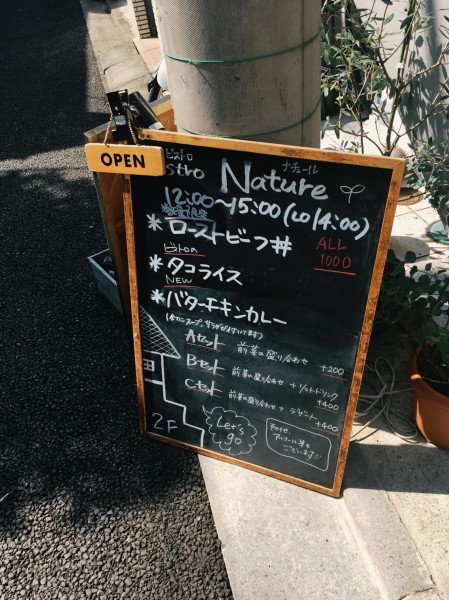 OPEN
ビストロ ナチュール
stro Nature
12:00〜15:00(LO 14:00)
*ローストビーフ丼
ALL
1000
*タコライス
NEW
*バターチキンカレー
(全てにスープ、サラダが付いてます)
Aセット 前菜の盛り合わせ +200
Bセット 前菜の盛り合わせ + ソフトドリンク
+400
Cセット 前菜の盛り合わせ + デザート +400
2F
Let's
go
その他、
アルコール等も
ございます!!